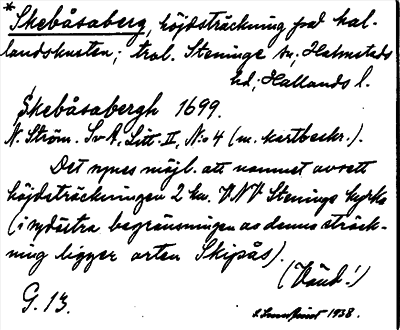 * Skebåsaberg, höjdsträckning på hal-
landskusten; trol. Steninge sn, Halmstads
hd, Hallands l.
Skebåsabergh 1699.
N. Ström. SvA, Litt. II, N:o 4 (m. kartbeskr.).
Det synes möjl. att namnet avsett
höjdsträckningen 2 km. VNV Steninge kyrka
(i sydöstra begränsningen av denna sträck-
ning ligger orten Skipås).
(Vänd!)
G. 13. 1938.